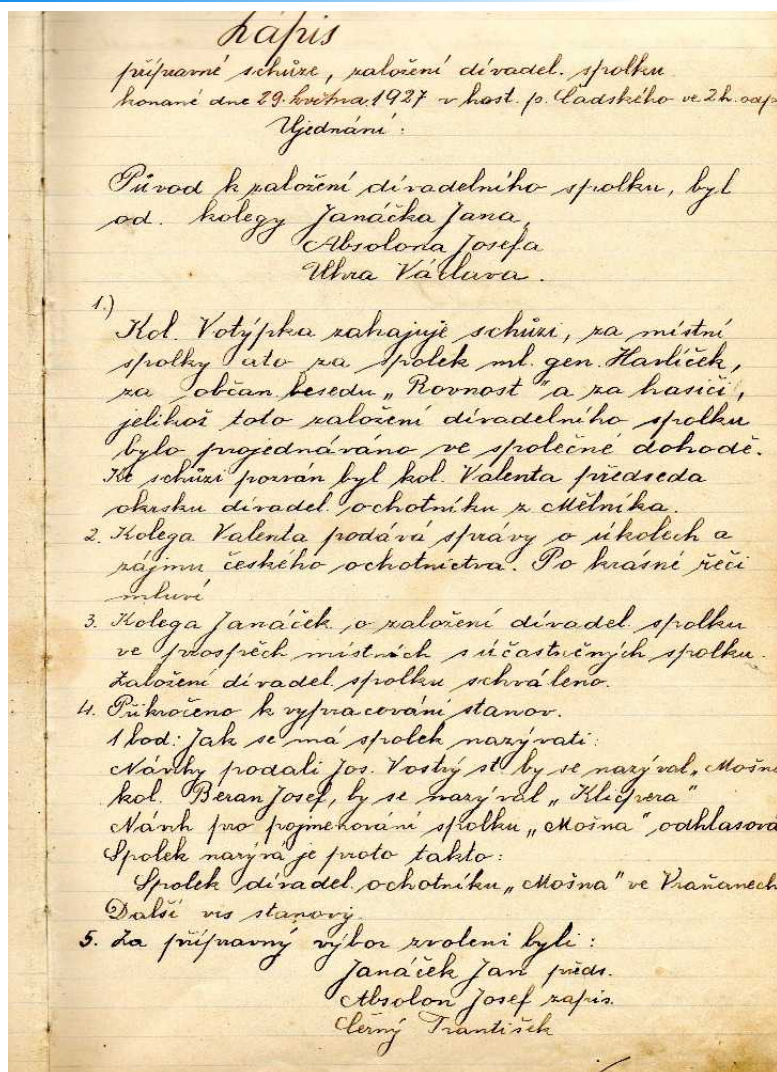 Zápis
přípravné schůze, založení divadel. spolku
konané dne 29. května 1927 v host. p. Čadského ve 2 h. odp
Ujednání:
Původ k založení divadelního spolku, byl
od. kolegy Janáčka Jana,
Absolona Josefa
Uhra Václava.
1.)
Kol. Votýpka zahajuje schůzi, za místní
spolky ato za spolek ml. gen. Havlíček,
za občan. besedu „Rovnost" a za hasiči,
jelikož toto založení divadelního spolku
bylo projednáváno ve společné dohodě.
Ke schůzi pozván byl kol. Valenta předseda
okrsku divadel. ochotníku z Mělníka.
2. Kolega Valenta podává správy o úkolech a
zájmu českého ochotnictva. Po krásné řeči
mluví
3. Kolega Janáček o založení divadel. spolku
ve prospěch místních súčastněných spolku.
Založení divadel. spolku schváleno.
4. Přikročeno k vypracování stanov.
1 bod: Jak se má spolek nazývati:
Návrhy podali Jos. Vostrý st. by se nazýval „Mošna
kol. Beran Josef, by se nazýval „Klicpera"
Návrh pro pojmenování spolku „Mošna" odhlasová
Spolek nazývá je proto takto:
Spolek divadel. ochotníku „Mošna" ve Vraňanech
Další vis stanovy.
5. Za přípravný výbor zvoleni byli:
Janáček Jan předs.
Absolon Josef zapis.
Černý František